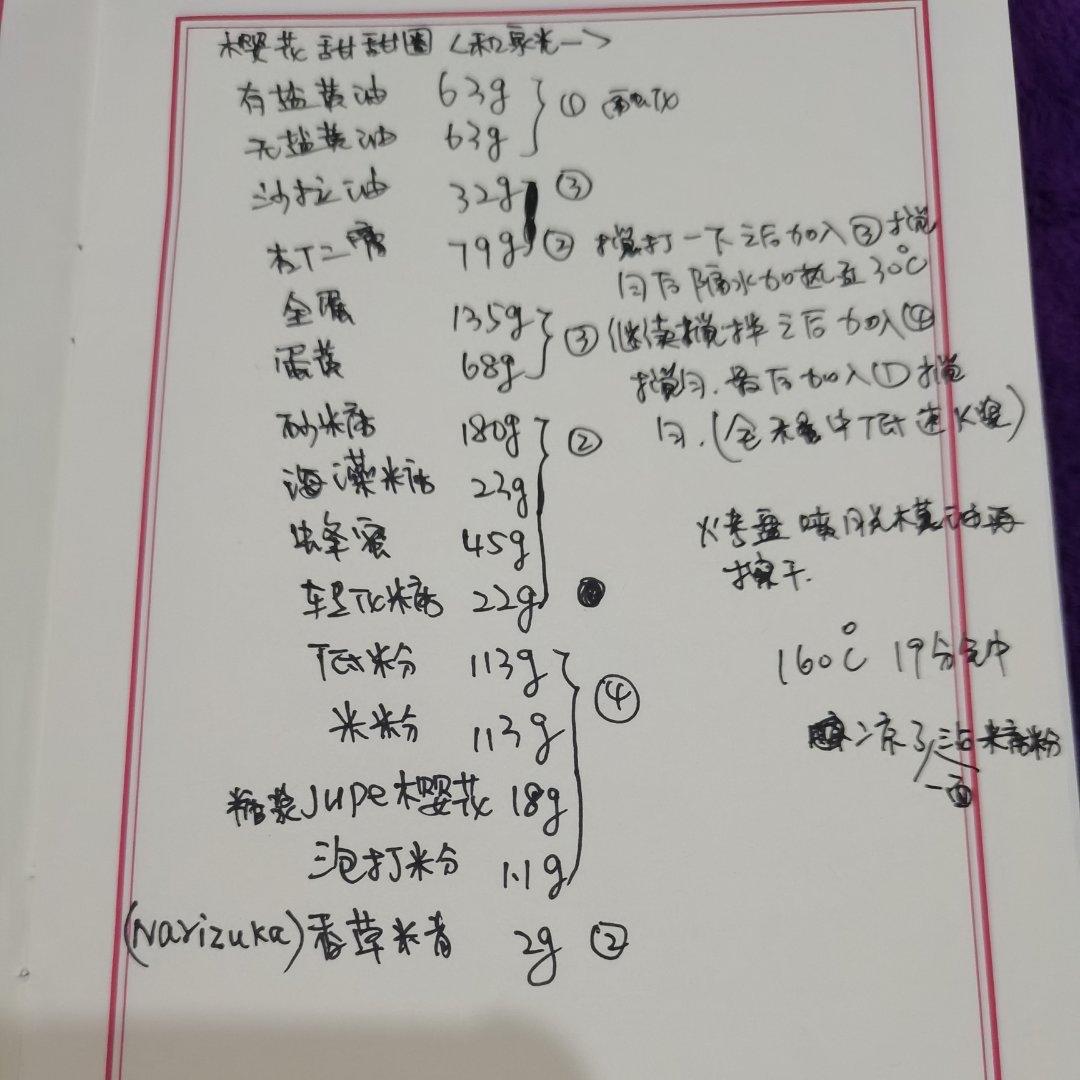 樱花甜甜圈 (和泉光一)
有盐黄油 63g ① 融化
无盐黄油 63g
沙拉油 32g ③
杜丁二糖 79g ② 搅打一下之后加入③搅
匀后隔水加热至30℃
全蛋 135g ③ 继续搅拌之后加入④
蛋黄 68g 搅匀.最后加入①搅
砂糖 180g ② 匀.(全程中低速K桨)
海藻糖 23g
蜂蜜 45g 烤盘喷脱模油再
擦干.
转化糖 22g
低粉 113g 160℃ 19分钟
④
米粉 113g 凉了沾糖粉
一面
糖浆Jupe樱花 18g
泡打粉 1.1g
(Narizuka)香草精 2g ②